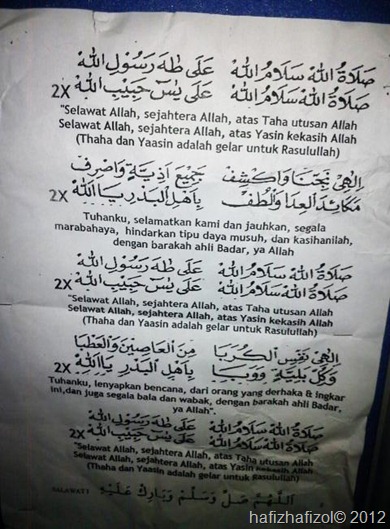 صَلَاةُ اللهْ سَلَامُ اللهْ عَلَى طٰهَ رَسُوْلِ اللهْ
2X صَلَاةُ اللهْ سَلَامُ اللهْ عَلَى يٰسٓ حَبِيْبِ اللهْ
"Selawat Allah, sejahtera Allah, atas Taha utusan Allah
Selawat Allah, sejahtera Allah, atas Yasin kekasih Allah
(Thaha dan Yaasin adalah gelar untuk Rasulullah)
اِلٰهِىْ نَجِّنَا وَاكْشِفْ جَمِيْعَ اَذِيَّةٍ وَاصْرِفْ
2X مَكَائِدَ الْعِدَا وَالْطُفْ بِاَهْلِ الْبَدْرِ يَا اللهْ
Tuhanku, selamatkan kami dan jauhkan, segala
marabahaya, hindarkan tipu daya musuh, dan kasihanilah,
dengan barakah ahli Badar, ya Allah
صَلَاةُ اللهْ سَلَامُ اللهْ عَلَى طٰهَ رَسُوْلِ اللهْ
2X صَلَاةُ اللهْ سَلَامُ اللهْ عَلَى يٰسٓ حَبِيْبِ اللهْ
"Selawat Allah, sejahtera Allah, atas Taha utusan Allah
Selawat Allah, sejahtera Allah, atas Yasin kekasih Allah
(Thaha dan Yaasin adalah gelar untuk Rasulullah)
اِلٰهِىْ نَفِّسِ الْكُرَبَا مِنَ الْعَاصِيْنَ وَالْعَطْبَا
2X وَكُلَّ بَلِيَّةٍ وَوَبَا بِاَهْلِ الْبَدْرِ يَا اللهْ
Tuhanku, lenyapkan bencana, dari orang yang derhaka & ingkar
ini,dan juga segala bala dan wabak, dengan barakah ahli Badar,
ya Allah".
صَلَاةُ اللهْ سَلَامُ اللهْ عَلَى طٰهَ رَسُوْلِ اللهْ
2X صَلَاةُ اللهْ سَلَامُ اللهْ عَلَى يٰسٓ حَبِيْبِ اللهْ
"Selawat Allah, sejahtera Allah, atas Taha utusan Allah
Selawat Allah, sejahtera Allah, atas Yasin kekasih Allah
(Thaha dan Yaasin adalah gelar untuk Rasulullah)
اَللّٰهُمَّ صَلِّ وَسَلِّمْ وَبَارِكْ عَلَيْهِ
hafizhafizol© 2012